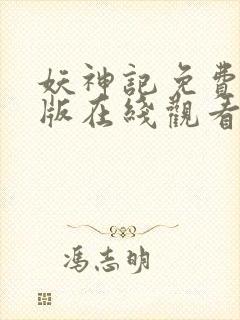 妖神記免費
版在綫觀看
馮志明